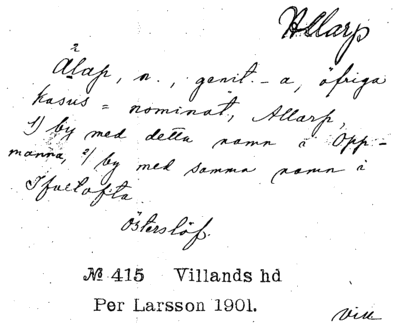 Allarp
2
Alap, n., genit. -a, öfriga
kasus = nominat, Allarp,
1) by med detta namn i Opp-
manna, 2) by med samma namn i
Ifvetofta.
Österslöf.
№ 415 Villands hd
Per Larsson 1901.